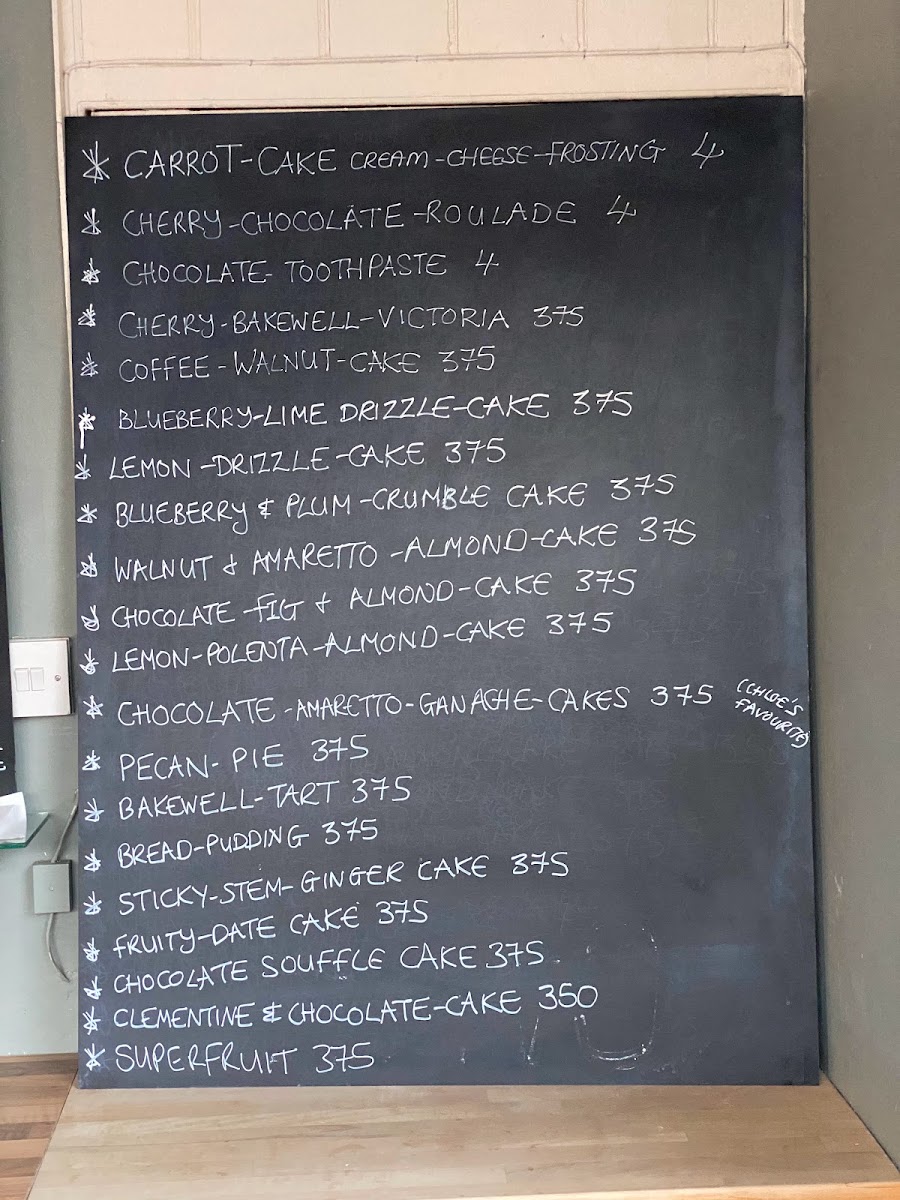 * CARROT-CAKE CREAM-CHEESE-FROSTING 4
* CHERRY-CHOCOLATE-ROULADE 4
* CHOCOLATE- TOOTHPASTE 4
* CHERRY-BAKEWELL-VICTORIA 375
* COFFEE-WALNUT-CAKE 375
* BLUEBERRY-LIME DRIZZLE-CAKE 375
* LEMON-DRIZZLE-CAKE 375
* BLUEBERRY & PLUM-CRUMBLE CAKE 375
* WALNUT & AMARETTO-ALMOND-CAKE 375
* CHOCOLATE-FIG & ALMOND-CAKE 375
* LEMON-POLENTA-ALMOND-CAKE 375
* CHOCOLATE-AMARETTO-GANACHE-CAKES 375 (CHLOE'S
FAVOURITE)
* PECAN-PIE 375
* BAKEWELL-TART 375
* BREAD-PUDDING 375
* STICKY-STEM-GINGER CAKE 375
* FRUITY-DATE CAKE 375
* CHOCOLATE SOUFFLE CAKE 375
* CLEMENTINE & CHOCOLATE-CAKE 350
* SUPERFRUIT 375